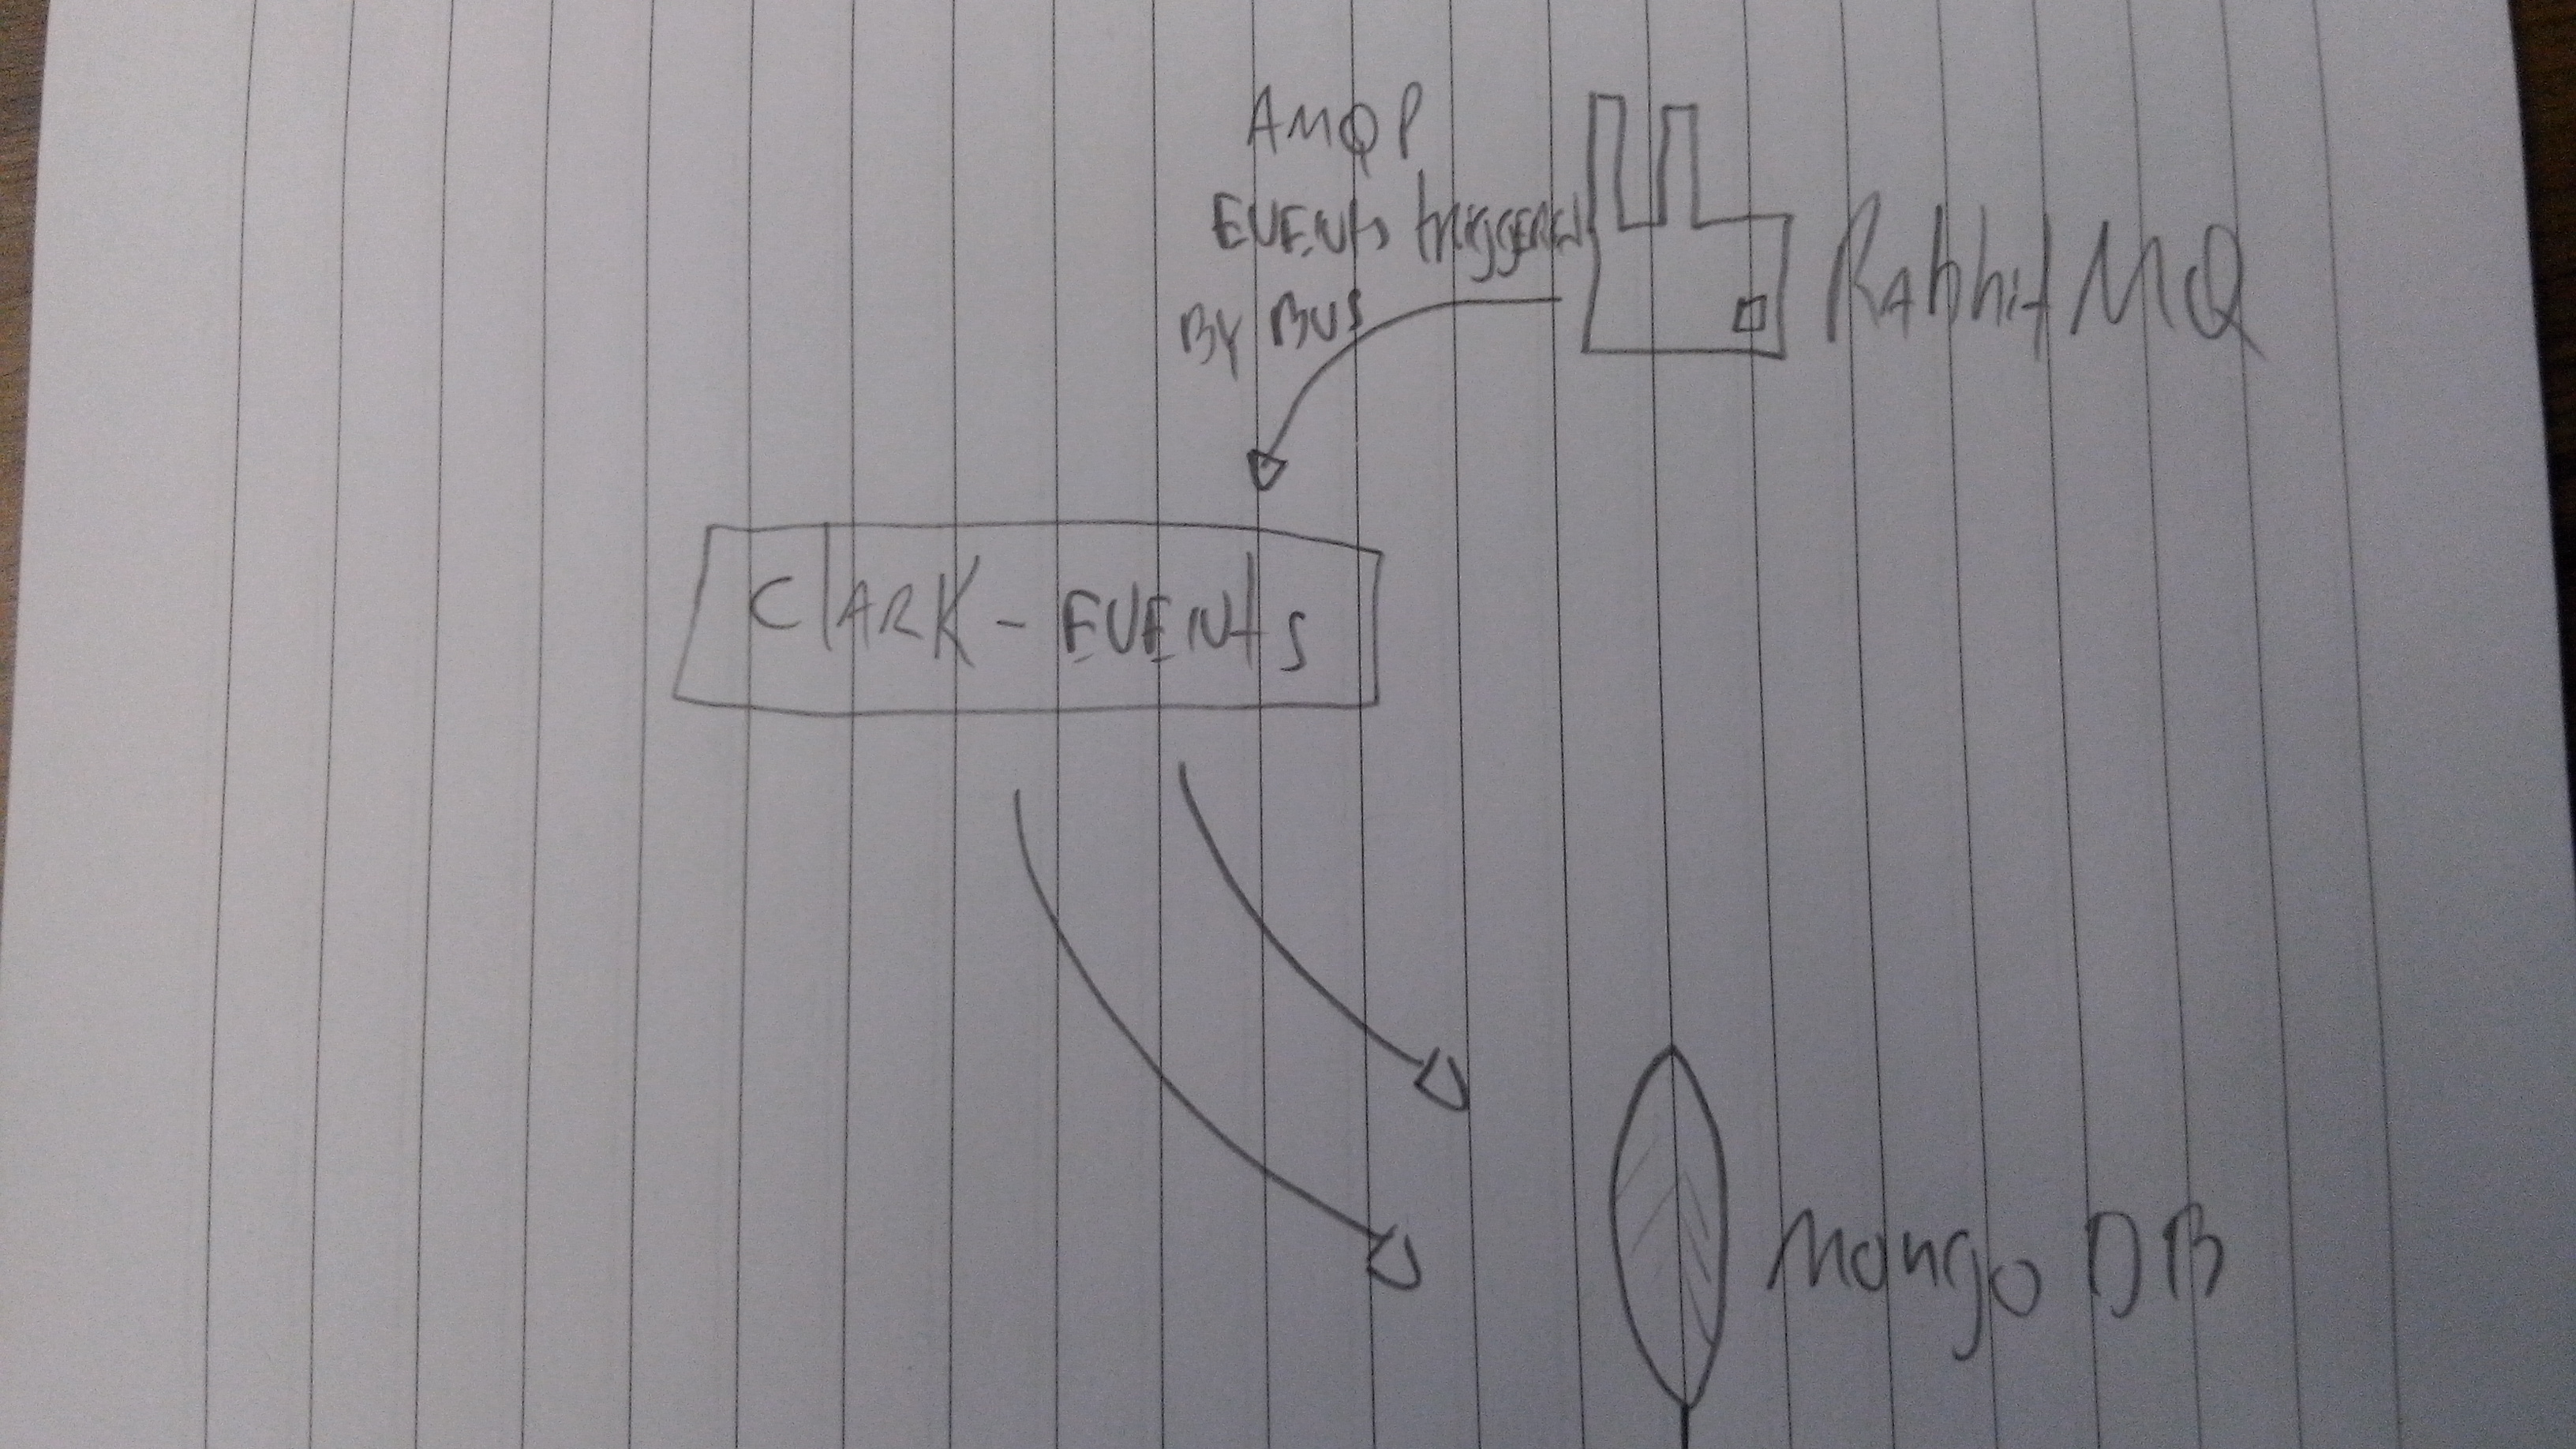 AMQP
EVENts triggered
By Bus
RabbitMQ
ClARK - EVENts
Mongo DB